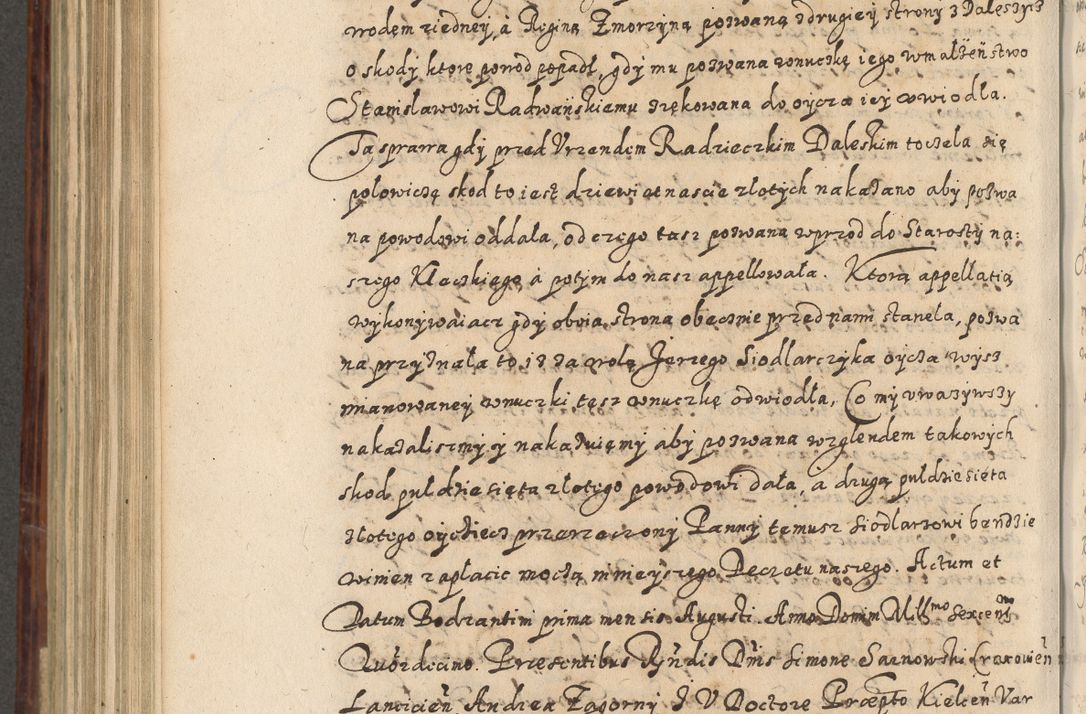 wodem ziedney, à Regina Zmorzyną pozwaną zdrugiey strony z Daleszyc
o skody ktore powod popadł, gdy mu pozwana wnuczkę iego w małżeństwo
Stanisławowi Radwańskiemu zrękowana do oycza iey odwiodła.
Ta sprawa gdy przed Vrzendem Radzieczkim Daleskim toczela się
polowiczę skod to iest dziewietnascie zlotych nakazano aby pozwa
na powodowi oddała, od czego tasz pozwana wprzod do Starosty na:
szego Kłeczkiego, à potym do nasz appellowała. Ktorą appellatią
wykonywaiacz gdy oboia strona obecznie przed nami stanela, pozwa
na przyznała to isz za wolą Jerzego Siodlarczyka oycza wysz
mianowaney wnuczki tęsz wnuczkę odwiodła, Co my uwazywszy
nakazaliszmy y nakazuięmy aby pozwana wzglendem takowych
skod puldziesięta złotego powodowi dała, a drugą puldziesieta
złotego oycziecz przerzeczony Panny temusz Siodlarzowi bendzie
winien zapłacic moczą ninieyszego Decretu naszego. Actum et
Datum Bodzantini prima mensis Augusti. Anno Domini Mill<sup>mo</sup> Sexcen<sup>mo</sup>
Quordecimo. Præsentibus Rńdis Dñis Simone Sarnowski Cracovieñ
Lancicieñ Andrea Zagorny I V Doctore Præpto Kielceñ Var